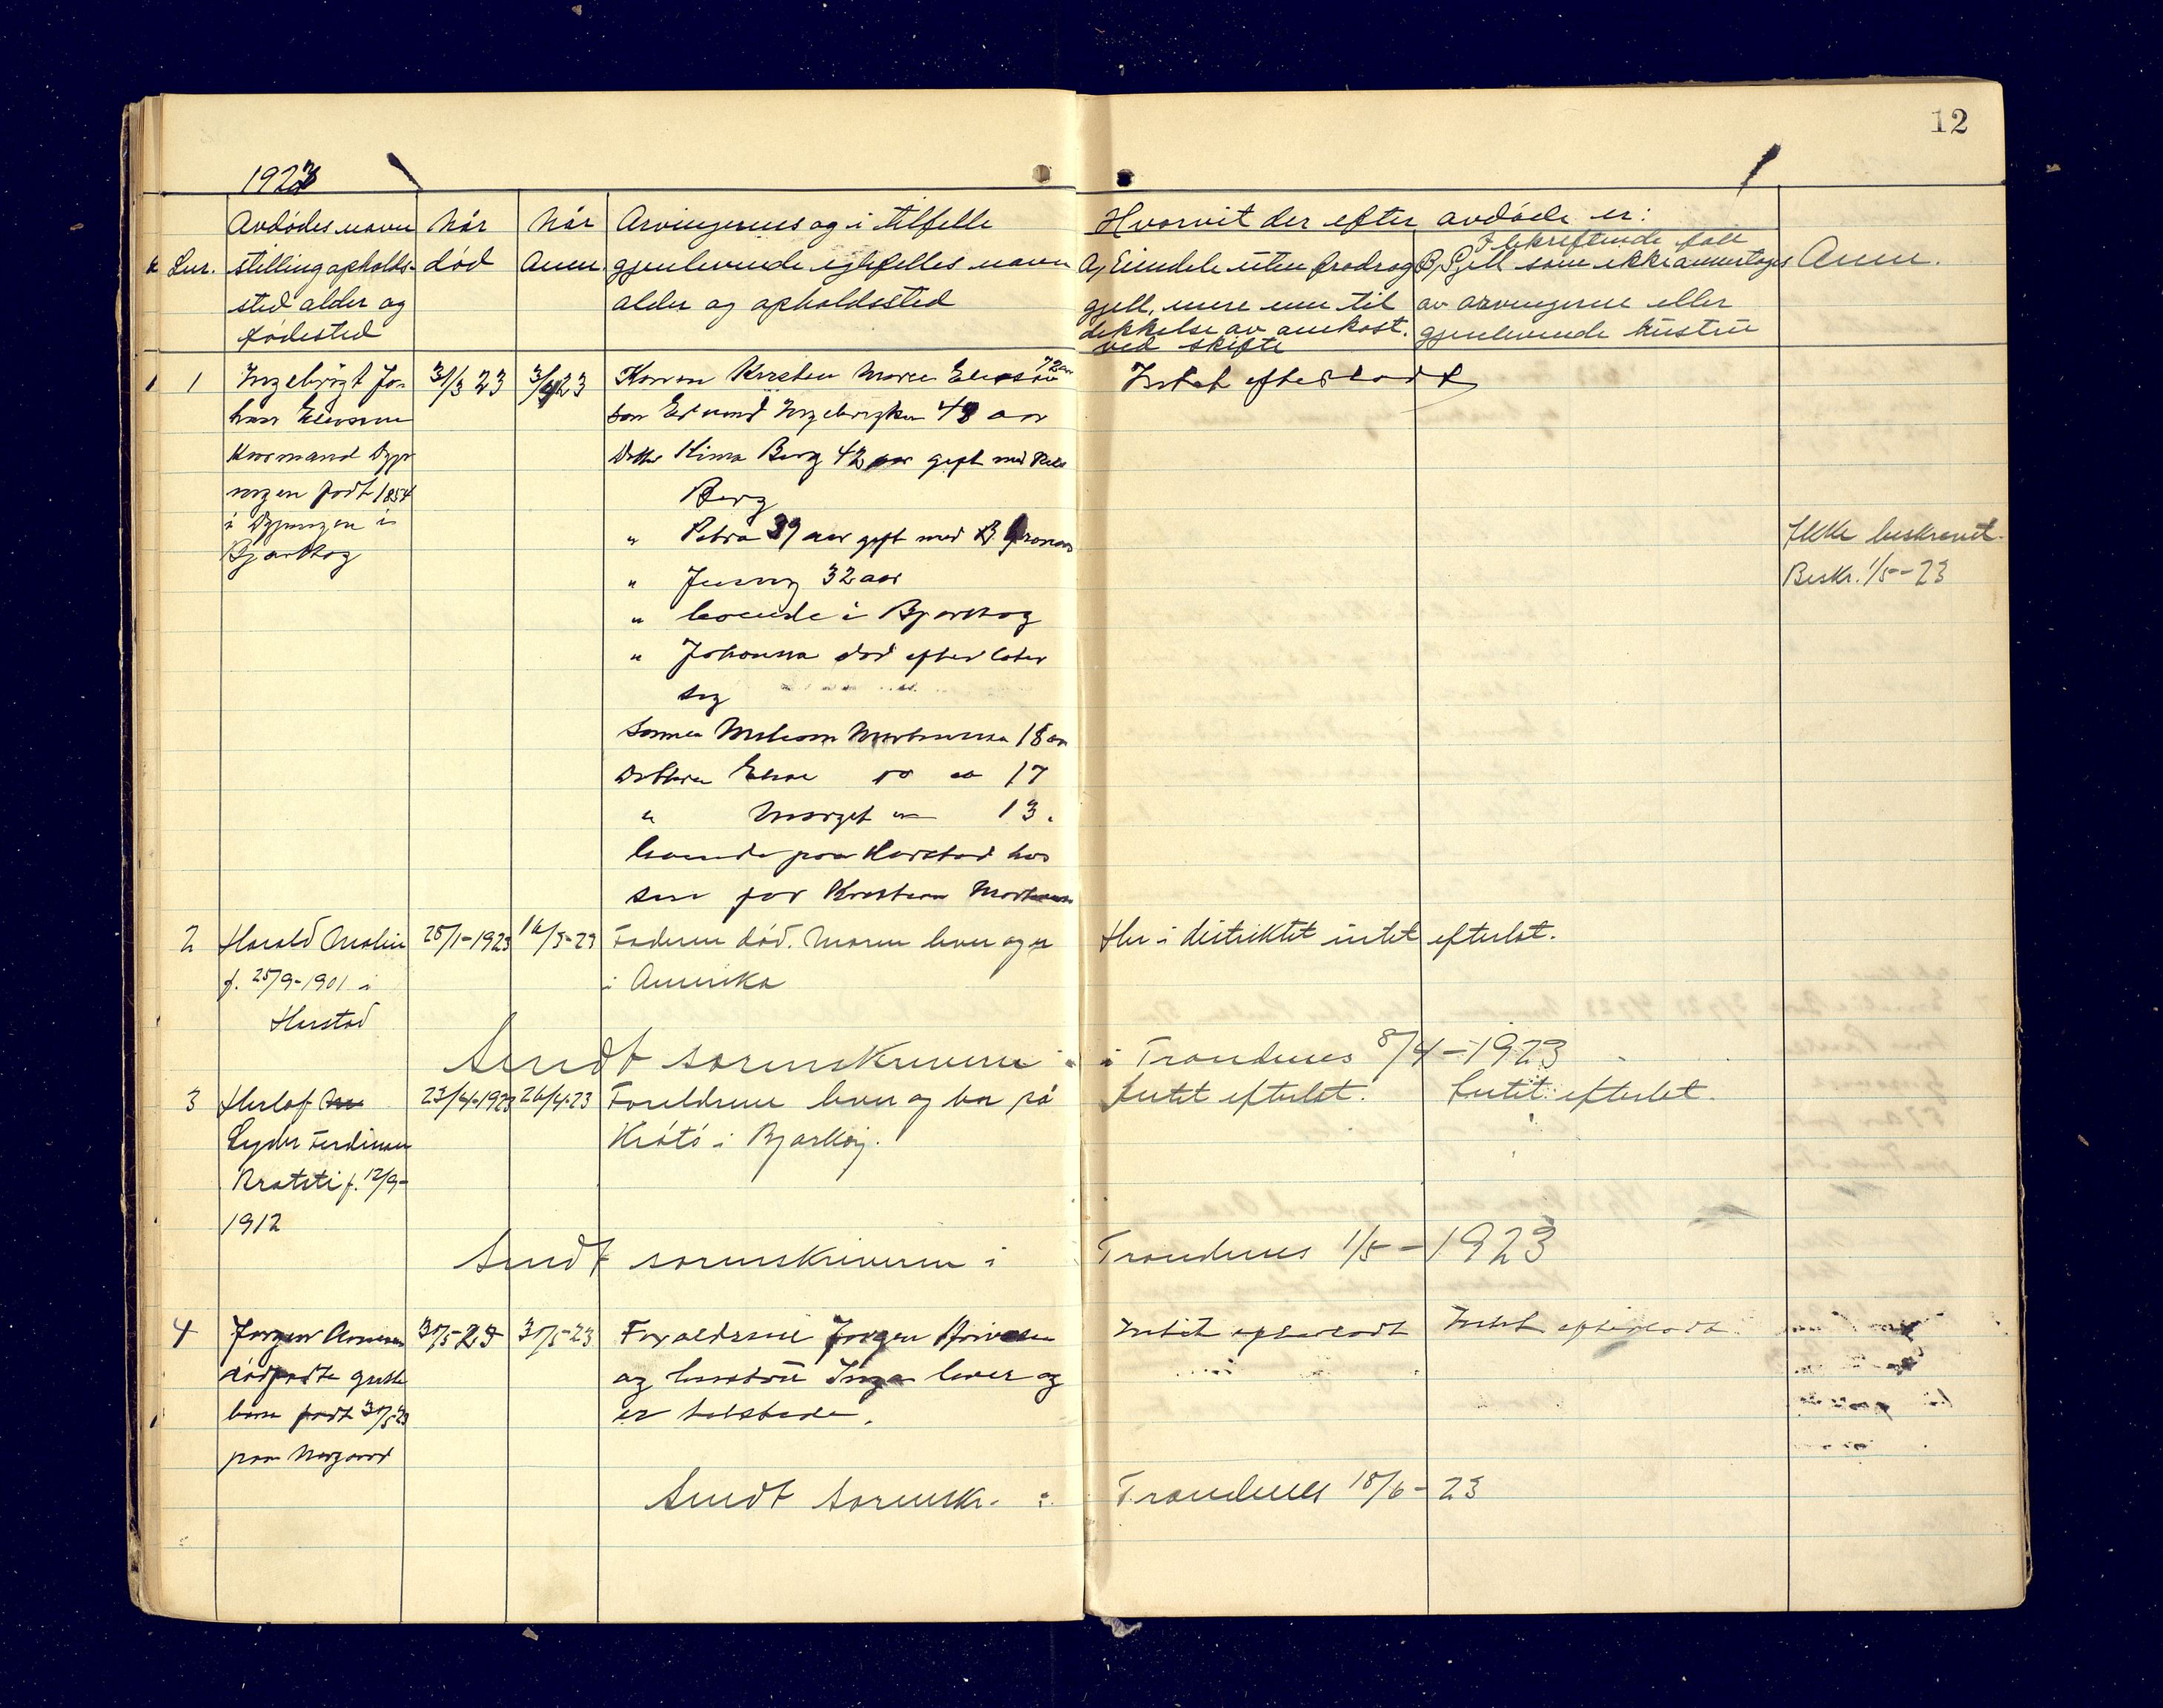 12
1923
Avdødes navn
stilling opholds-
sted alder og
fødested
Når
død
Når
Anm.
Arvingernes og i tilfelle
gjenlevende egtefelles navn
alder og opholdssted
Hvorvit der efter avdøde er:
A) Eiendele uten fradrag
gjell, mere enn til
dekkelse av omkost.
ved skifte
I bekreftende fall
B) Gjell som ikke overtages
av arvingerne eller
gjenlevende hustru
Anm.
1 1
Ingebrigt Jo-
han Eliassen
Kaarmand Dypi
ngen født 1854
i Dypingen i
Bjarkøy
31/3 23
3/4 23
Konen Kirsten Marie Eliassen 72 aar
Søn Edvard Ingebrigtsen 48 aar
Datter Kima Berg 42 aar gift med
Berg
" Petra 39 aar gift med
" Jenny 32 aar
" boende i Bjarkøy
" Johanna død efterlater
sig
Sønnen 18 aar
Datteren Elise do do 17
" Marget 13.
boende paa Harstad hos
sin far Kristian
Intet efterladt
Ikke beskrevet.
Beskr. 1/5-23
2
Harald Malin
f. 25/9-1901 i
Harstad
28/1-1923
16/3-23
Faderen død. Moren lever og er
i Amerika
Her i distriktet intet efterlat.
Arndt sorenskriveren i
i Trondenes 8/4-1923
3
Herlof
Lyder Ferdinan
Krateti f. 12/9-
1912
23/4-1923
26/4-23
Foreldrene lever og bor på
Krøtø i Bjarkøy.
Intet efterlat.
Intet efterlat.
Arndt sorenskriveren i
Trondenes 1/5-1923
4
Jørgen Arnesen
dødfødte gutte
barn født 30/5 23
paa Nergaard
30/5-23
31/5-23
Forældrene Jørgen
og hustru Inga lever og
er tilstede.
Intet efterladt
Intet efterladt
Arndt Sorenskr. i
Trondenes 18/6-23